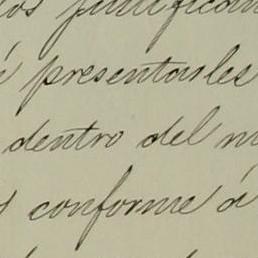 los justifican
é presentarles
dentro del
conforme á